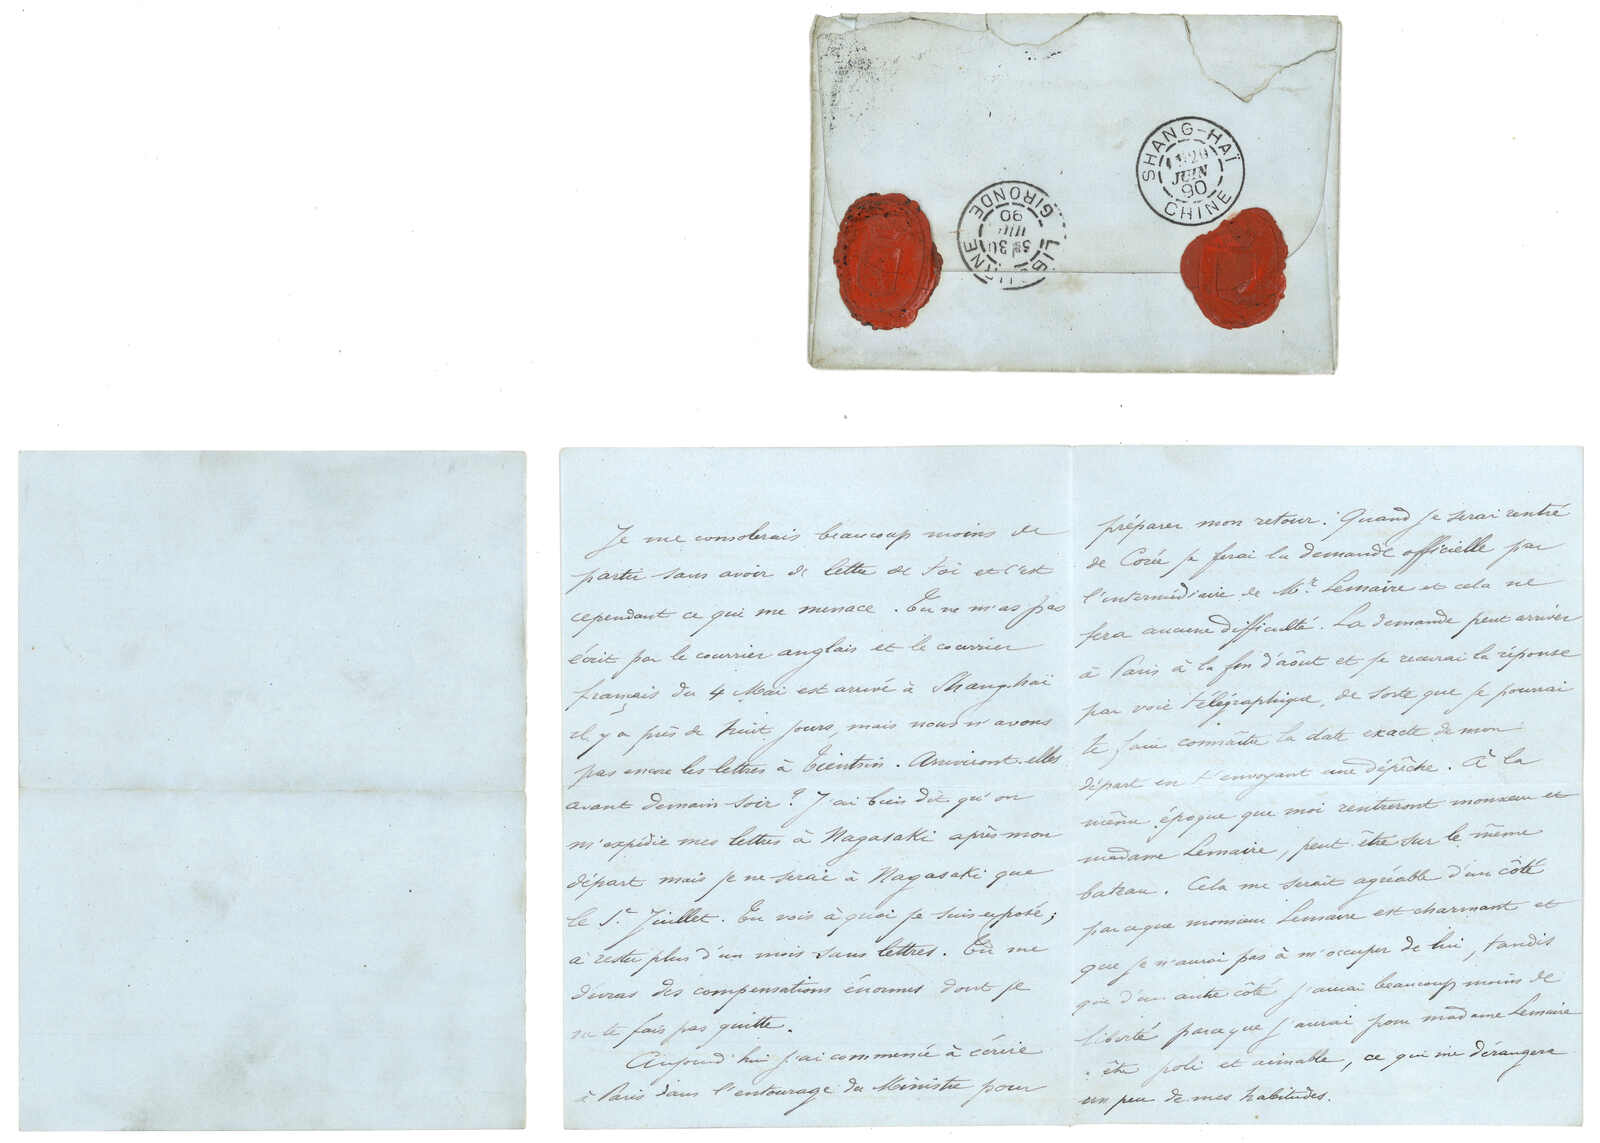 SHANG-HAÏ
20
JUIN
90
CHINE
LIB URNE
30
JUIL
90
GIRONDE
Je me consolerais beaucoup moins de
partir sans avoir de lettre de toi et c'est
cependant ce qui me menace. Tu ne m'as pas
écrit par le courrier anglais et le courrier
français du 4 Mai est arrivé à Shang-haï
il y a près de huit jours, mais nous n'avons
pas encore les lettres à Tientsin. Arriveront-elles
avant demain soir? J'ai bien dit qu'on
m'expédie mes lettres à Nagasaki après mon
départ mais je ne serai à Nagasaki que
le 1er Juillet. Tu vois à quoi je suis exposé;
à rester plus d'un mois sans lettres. Tu me
devras des compensations énormes dont je
ne te fais pas quitte.
Aujourd'hui j'ai commencé à écrire
à Paris dans l'entourage du Ministre pour
préparer mon retour. Quand je serai rentré
de Corée je ferai la demande officielle par
l'intermédiaire de Mr. Lemaire et cela ne
fera aucune difficulté. La demande peut arriver
à Paris à la fin d'août et je recevrai la réponse
par voie télégraphique, de sorte que je pourrai
te faire connaître la date exacte de mon
départ en t'envoyant une dépêche. À la
même époque que moi rentreront monsieur et
madame Lemaire, peut être sur le même
bateau. Cela me serait agréable d'un côté
parceque monsieur Lemaire est charmant et
que je n'aurai pas à m'occuper de lui, tandis
que d'un autre côté j'aurai beaucoup moins de
liberté parceque j'aurai pour madame Lemaire
à être poli et aimable, ce qui me dérangera
un peu de mes habitudes.